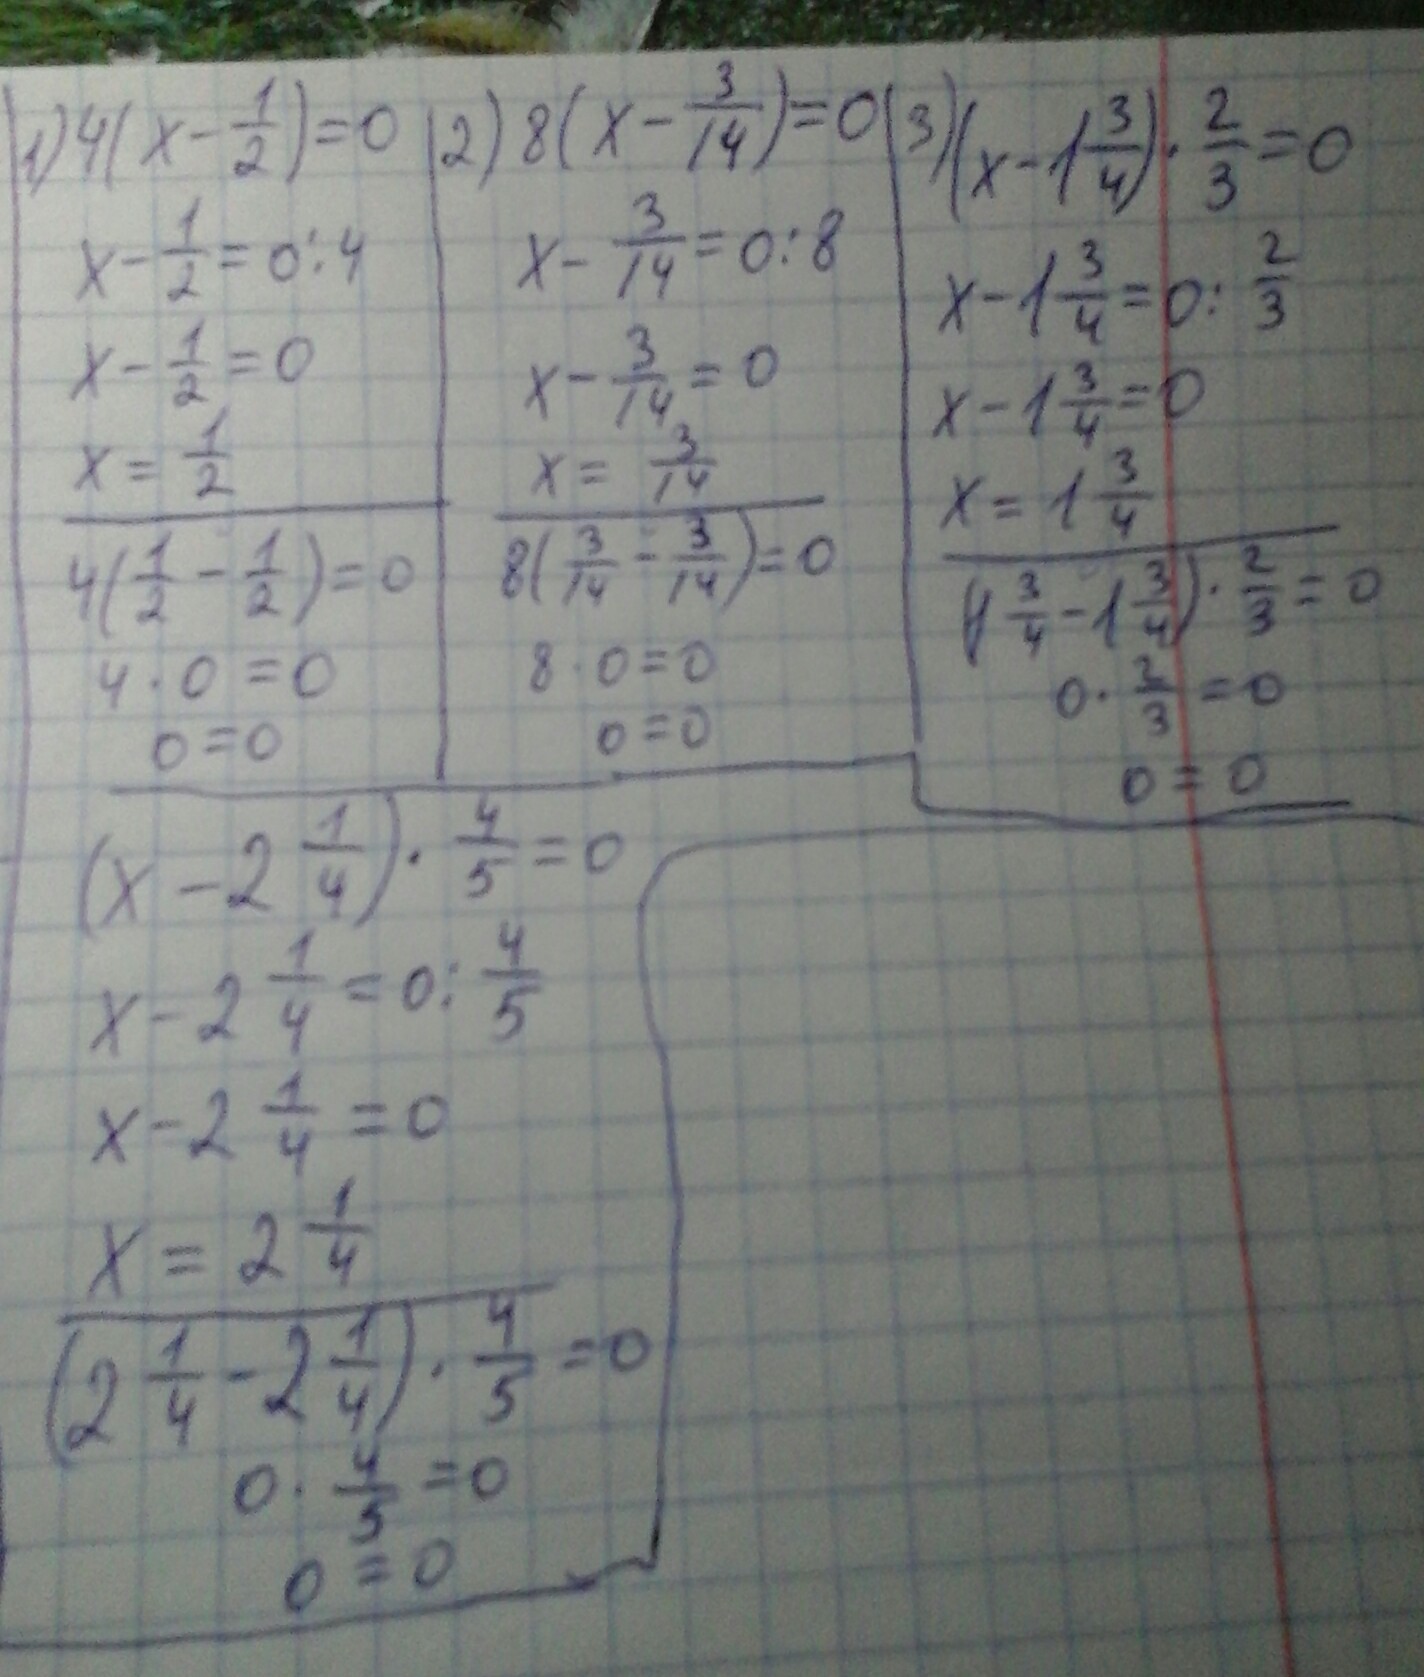 1) 4(x - 1/2) = 0
x - 1/2 = 0 : 4
x - 1/2 = 0
x = 1/2
4(1/2 - 1/2) = 0
4 · 0 = 0
0 = 0
2) 8(x - 3/14) = 0
x - 3/14 = 0 : 8
x - 3/14 = 0
x = 3/14
8(3/14 - 3/14) = 0
8 · 0 = 0
0 = 0
3) (x - 1 3/4) · 2/3 = 0
x - 1 3/4 = 0 : 2/3
x - 1 3/4 = 0
x = 1 3/4
(1 3/4 - 1 3/4) · 2/3 = 0
0 · 2/3 = 0
0 = 0
(x - 2 1/4) · 4/5 = 0
x - 2 1/4 = 0 : 4/5
x - 2 1/4 = 0
x = 2 1/4
(2 1/4 - 2 1/4) · 4/5 = 0
0 · 4/5 = 0
0 = 0